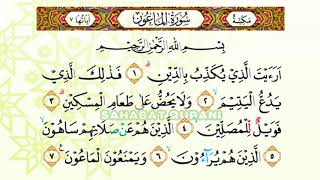 مَكِّيَّة سُورَةُ الْمَاعُونِ اٰيَاتُهَا ٧
بِسْمِ اللهِ الرَّحْمٰنِ الرَّحِيْمِ
اَرَءَيْتَ الَّذِيْ يُكَذِّبُ بِالدِّيْنِۗ ١ فَذٰلِكَ الَّذِيْ
يَدُعُّ الْيَتِيْمَۙ ٢ وَلَا يَحُضُّ عَلٰى طَعَامِ الْمِسْكِيْنِۗ ٣
فَوَيْلٌ لِّلْمُصَلِّيْنَۙ ٤ الَّذِيْنَ هُمْ عَنْ صَلَاتِهِمْ سَاهُوْنَۙ ٥
الَّذِيْنَ هُمْ يُرَاۤءُوْنَۙ ٦ وَيَمْنَعُوْنَ الْمَاعُوْنَ ٧
SAHABAT QURANI